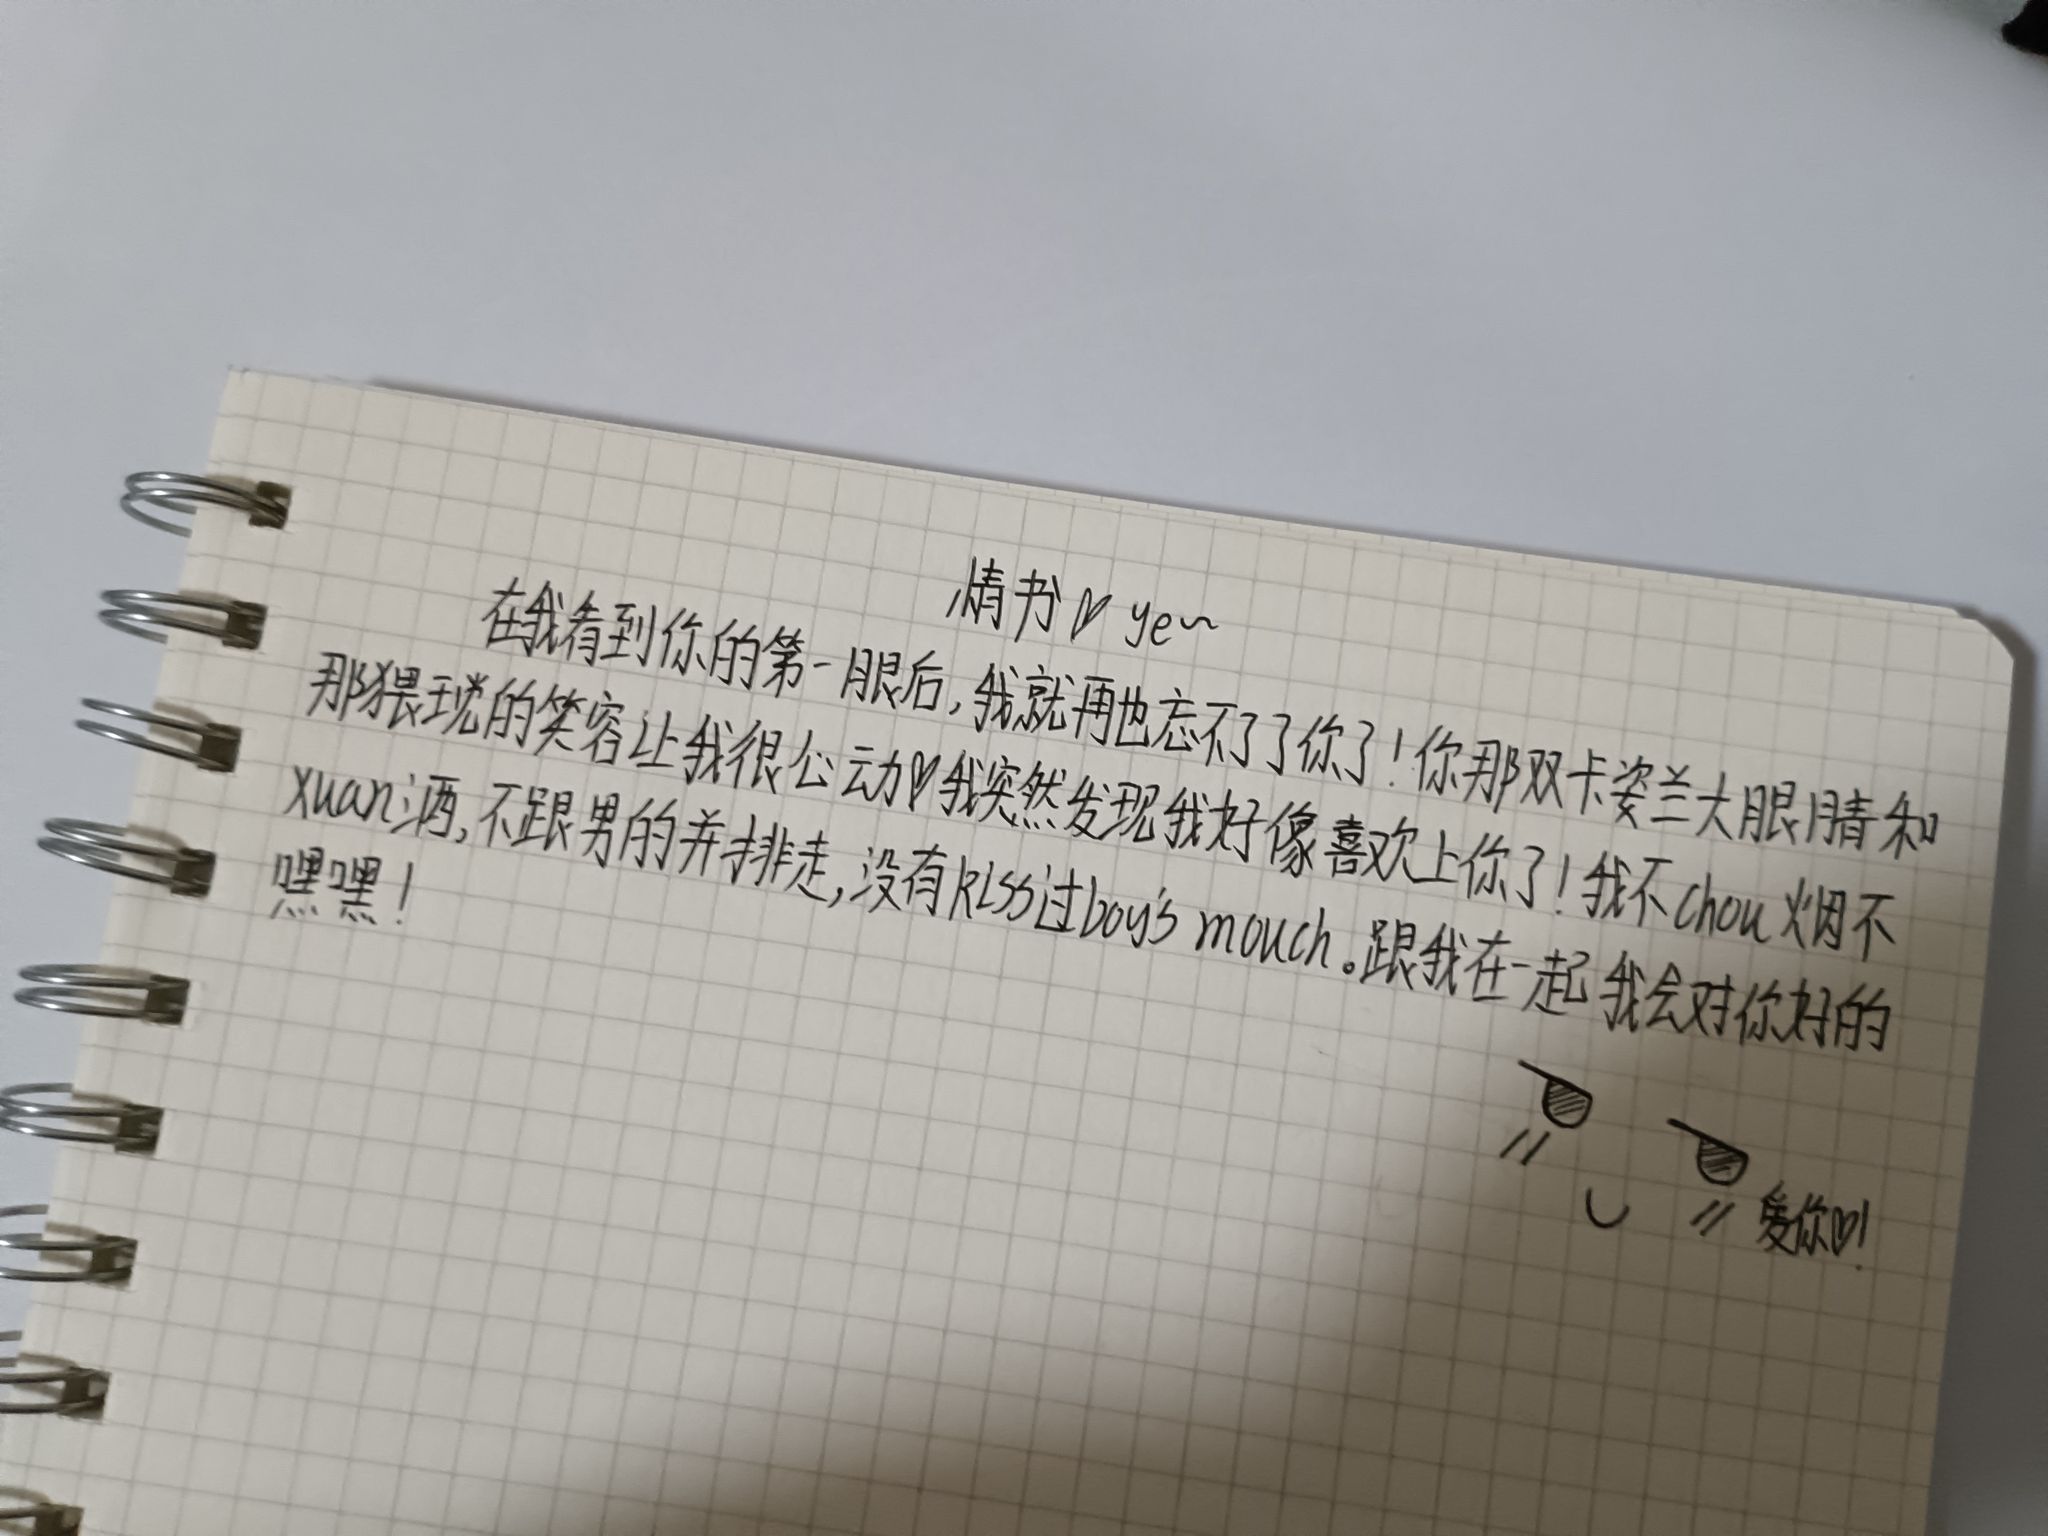 情书♡ ye~
在我看到你的第一眼后,我就再也忘不了了你了!你那双卡姿兰大眼睛和
那猥琐的笑容让我很心动♡我突然发现我好像喜欢上你了!我不chou烟不
xuan酒,不跟男的并排走,没有kiss过boy's mouch。跟我在一起我会对你好的
嘿嘿!
爱你♡!